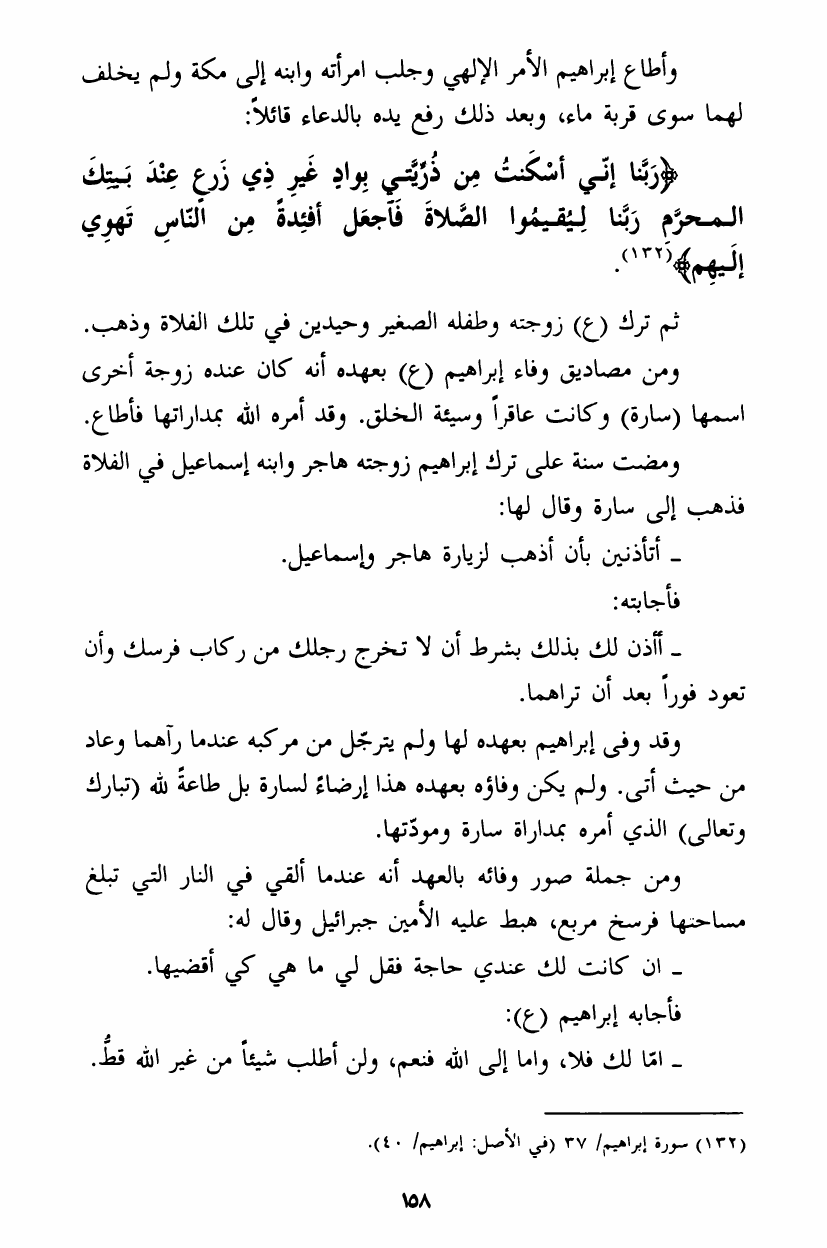 وأطاع إبراهيم الأمر الإلهي وجلب امرأته وابنه إلى مكة ولم يخلف
لهما سوى قربة ماء، وبعد ذلك رفع يده بالدعاء قائلاً:
﴿رَبَّنا إنّي أسْكَنتُ مِن ذُرِّيَّتي بِوادٍ غَيرِ ذِي زَرعٍ عِنْدَ بَيتِكَ
المحرَّمِ رَبَّنا لِيُقيمُوا الصَّلاةَ فَآجعَل أفئِدةً مِن النّاسِ تَهوِي
إلَيهِم﴾(١٣٢).
ثم ترك (ع) زوجته وطفله الصغير وحيدين في تلك الفلاة وذهب.
ومن مصاديق وفاء إبراهيم (ع) بعهده أنه كان عنده زوجة أخرى
اسمها (سارة) وكانت عاقراً وسيئة الخلق. وقد أمره الله بمداراتها فأطاع.
ومضت سنة على ترك إبراهيم زوجته هاجر وابنه إسماعيل في الفلاة
فذهب إلى سارة وقال لها:
ـ أتأذنين بأن أذهب لزيارة هاجر وإسماعيل.
فأجابته:
ـ أأذن لك بذلك بشرط أن لا تخرج رجلك من ركاب فرسك وأن
تعود فوراً بعد أن تراهما.
وقد وفى إبراهيم بعهده لها ولم يترجّل من مركبه عندما رآهما وعاد
من حيث أتى. ولم يكن وفاؤه بعهده هذا إرضاءً لسارة بل طاعةً لله (تبارك
وتعالى) الذي أمره بمداراة سارة ومودّتها.
ومن جملة صور وفائه بالعهد أنه عندما ألقي في النار التي تبلغ
مساحتها فرسخ مربع، هبط عليه الأمين جبرائيل وقال له:
ـ ان كانت لك عندي حاجة فقل لي ما هي كي أقضيها.
فأجابه إبراهيم (ع):
ـ امّا لك فلا، واما إلى الله فنعم، ولن أطلب شيئاً من غير الله قطُّ.
(١٣٢) سورة إبراهيم/ ٣٧ (في الأصل: إبراهيم/ ٤٠).
١٥٨